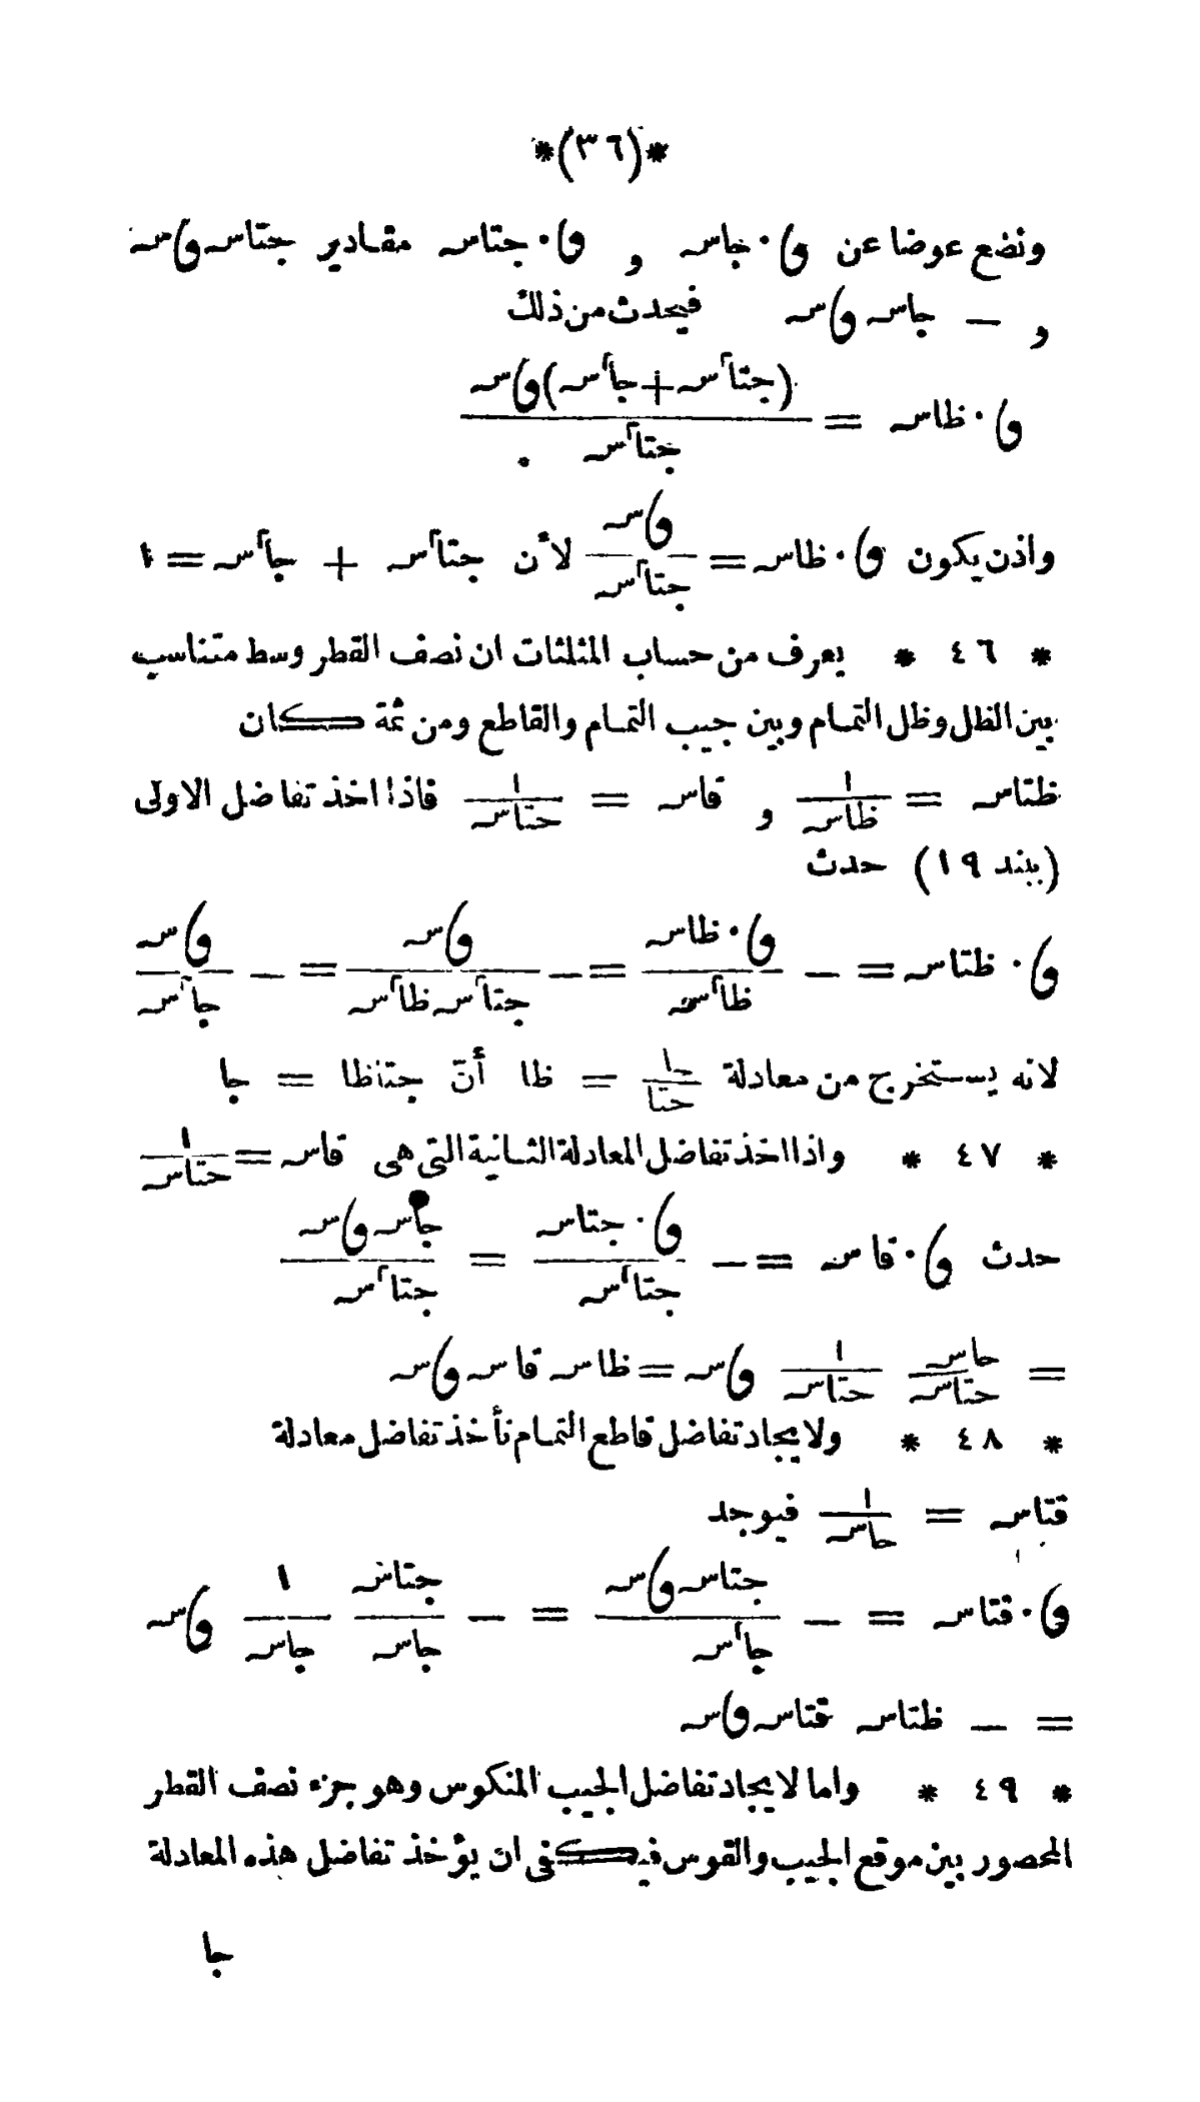 *(٣٦)*
ونضع عوضا عن ﻭ٠جاس و ﻭ٠جتاس مقادير جتاس ﻭس
و − جاس ﻭس فيحدث من ذلك
ﻭ٠ظاس = (جتا٢س + جا٢س)ﻭس / جتا٢س
واذن يكون ﻭ٠ظاس = ﻭس / جتا٢س لأن جتا٢س + جا٢س = ١
* ٤٦ * يعرف من حساب المثلثات ان نصف القطر وسط متناسب
بين الظل وظل التمام وبين جيب التمام والقاطع ومن ثمة كان
ظتاس = ١ / ظاس و قاس = ١ / حتاس فاذا اخذ تفاضل الاولى
(ببند ١٩) حدث
ﻭ٠ظتاس = − ﻭ٠ظاس / ظا٢س = − ﻭس / جتا٢س ظا٢س = − ﻭس / جا٢س
لانه يستخرج من معادلة حا / حتا = ظا أنّ جتاظا = جا
* ٤٧ * واذا اخذ تفاضل المعادلة الثانية التى هى قاس = ١ / حتاس
حدث ﻭ٠قاس = − ﻭ٠جتاس / جتا٢س = جاس ﻭس / جتا٢س
= حاس / حتاس ١ / حتاس ﻭس = ظاس قاس ﻭس
* ٤٨ * ولايجاد تفاضل قاطع التمام نأخذ تفاضل معادلة
قتاس = ١ / حاس فيوجد
ﻭ٠قتاس = − جتاس ﻭس / جا٢س = − جتاس / جاس ١ / جاس ﻭس
= − ظتاس قتاس ﻭس
* ٤٩ * واما لايجاد تفاضل الجيب المنكوس وهو جزء نصف القطر
المحصور بين موقع الجيب والقوس فيكفى ان يؤخذ تفاضل هذه المعادلة
جا